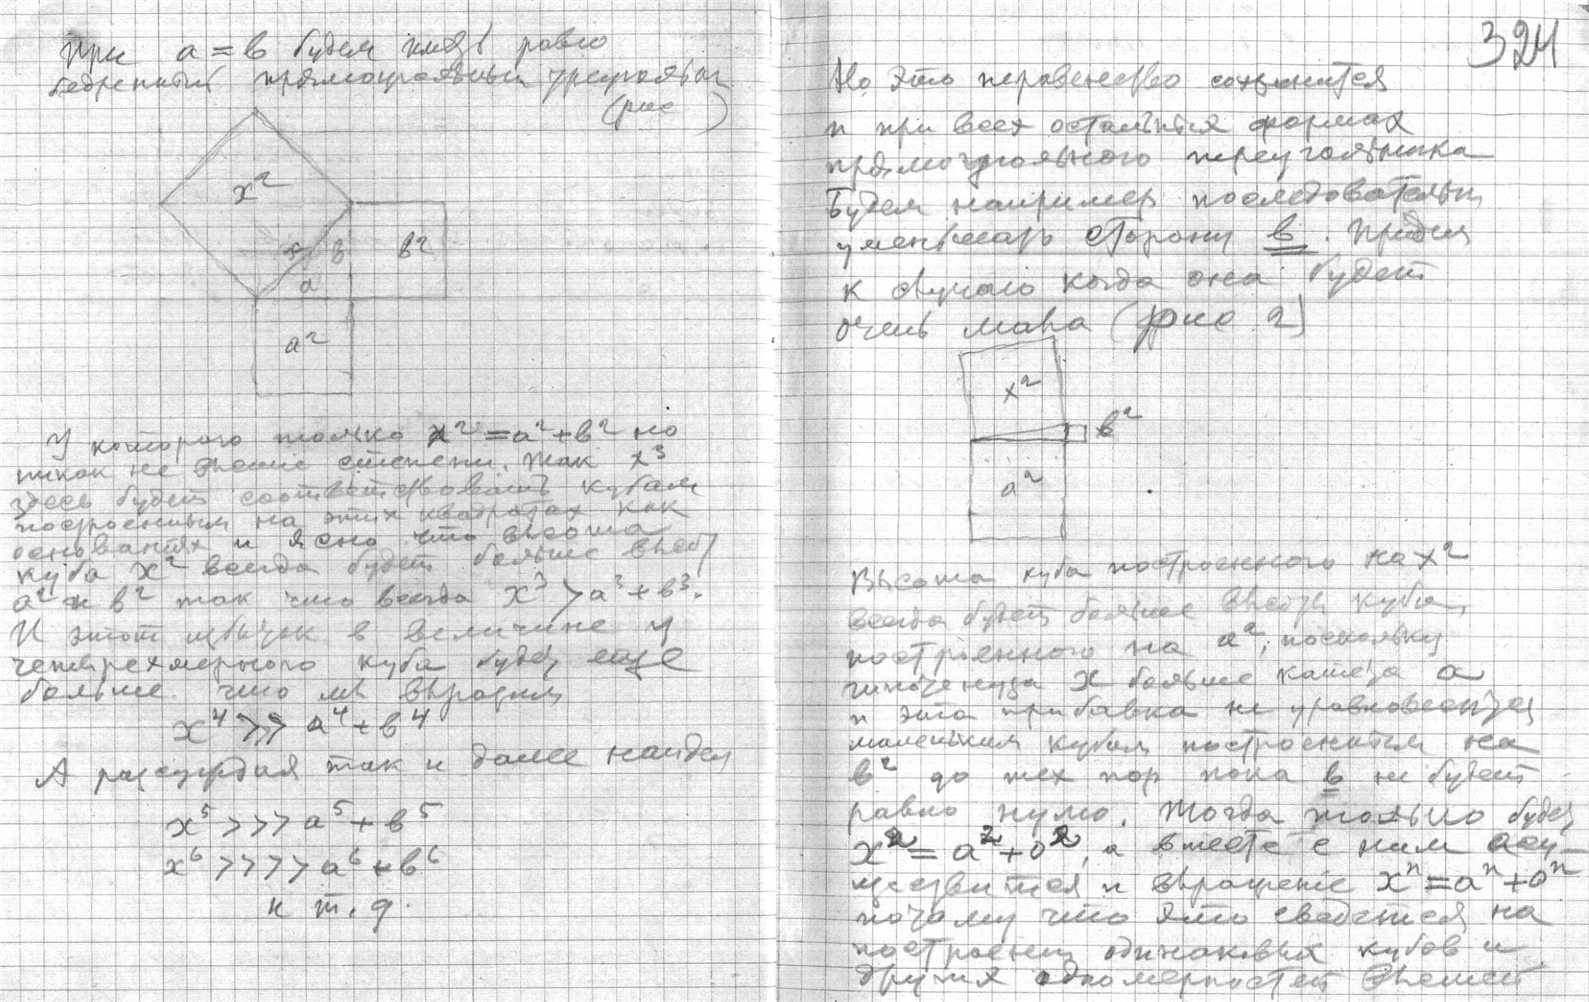 При a = в будем иметь равно
бедренный прямоугольный треугольник
(рис )
x²
x
в
в²
a
a²
У которого только x² = a² + в² но
никак не выше степени. Так x³
здесь будет соответствовать кубам
построенным на этих квадратах как
основаниях и ясно что высота
куба x² всегда будет больше высот
a² и в² так что всегда x³ > a³ + в³.
И этот избыток в величине у
четырехмерного куба будет еще
больше что мы выразим
x⁴ >> a⁴ + в⁴
А рассуждая так и далее найдем
x⁵ >>> a⁵ + в⁵
x⁶ >>>> a⁶ + в⁶
и т. д.
324
Но это неравенство сохранится
и при всех остальных формах
прямоугольного треугольника
Будем например последовательно
уменьшать сторону в. Придем
к случаю когда она будет
очень мала (рис 2)
x²
в²
a²
Высота куба построенного на x²
всегда будет больше высоты куба,
построенного на a², поскольку
гипотенуза x больше катета a
и эта прибавка не уравновесится
маленьким кубом построенным на
в² до тех пор пока в не будет
равно нулю. Тогда только будет
x² = a² + 0², а вместе с ним осу-
ществится и выражение xⁿ = aⁿ + 0ⁿ
потому что это сведется на
построение одинаковых кубов и
других одномерностей высшей